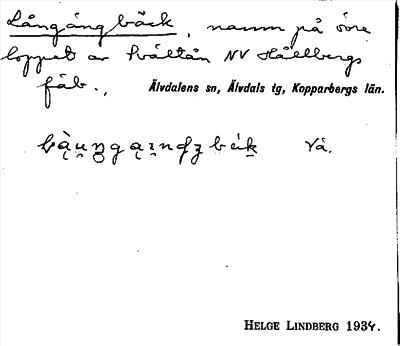 Långångbäck, namn på övre
loppet av Kvältån NV Hållbergs
fäb.,
Älvdalens sn, Älvdals tg, Kopparbergs län.
Vå.
HELGE LINDBERG 1934.